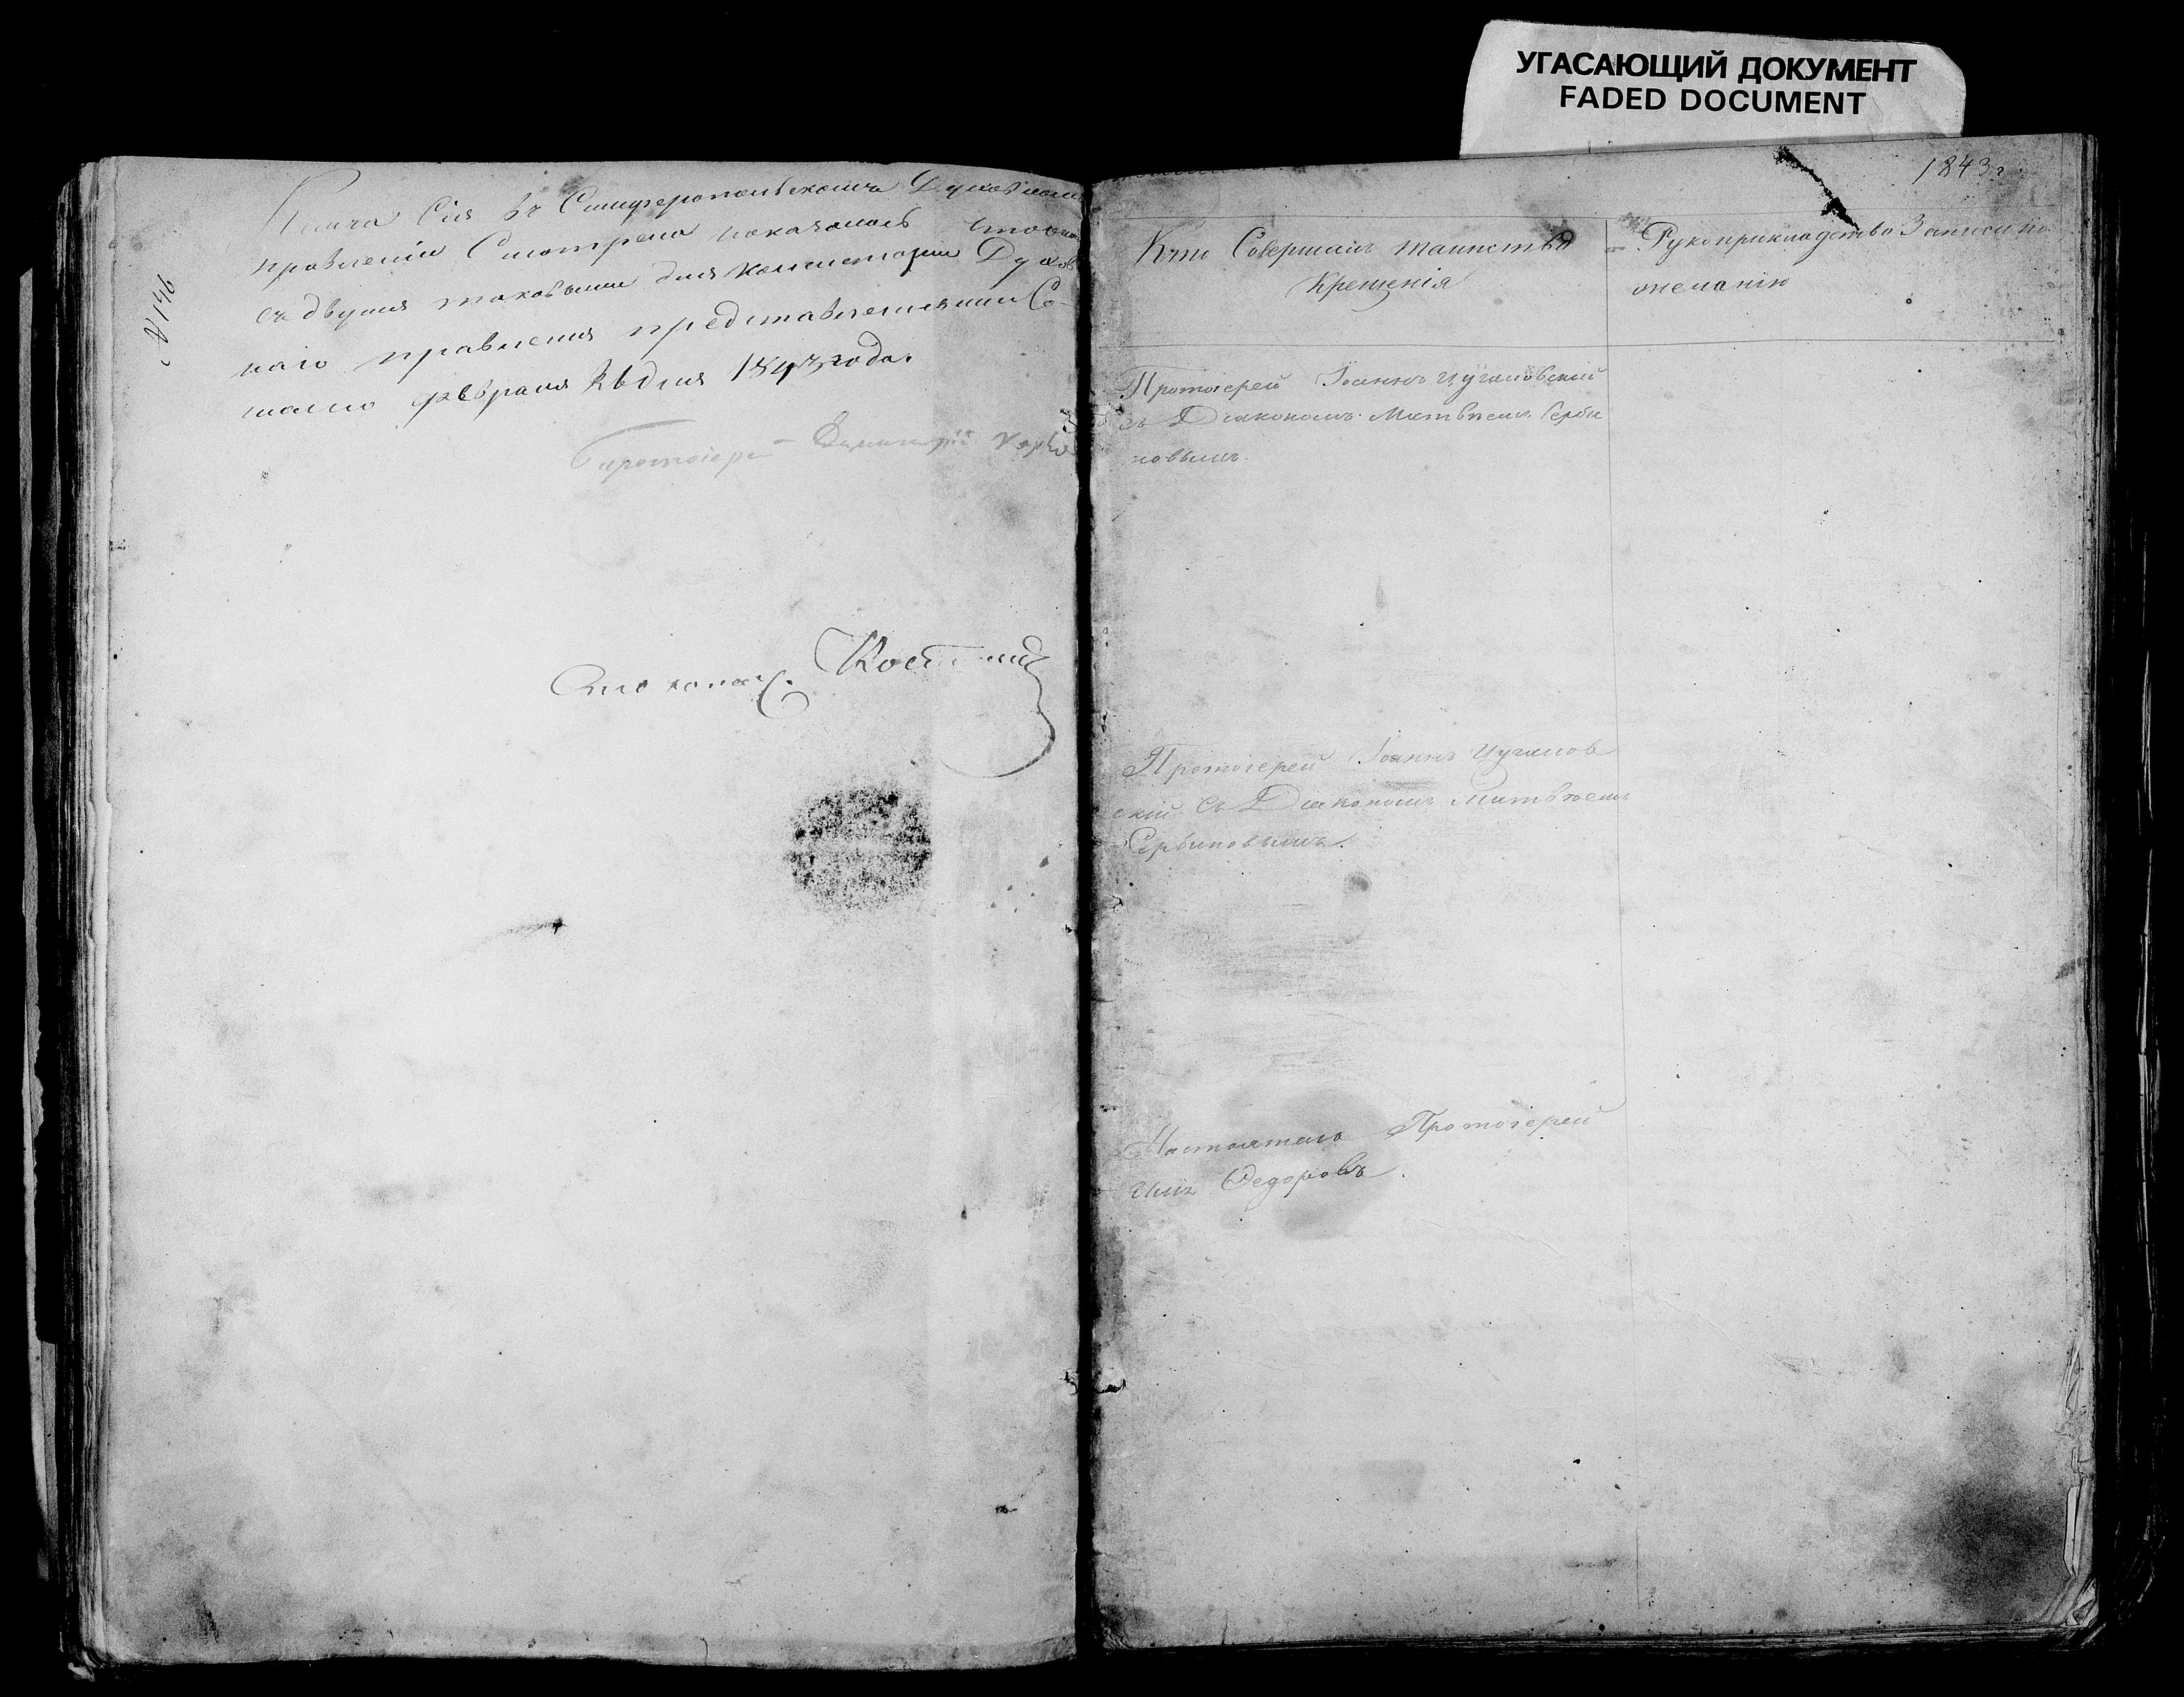 УГАСАЮЩИЙ ДОКУМЕНТ
FADED DOCUMENT
№ 146
Книга Сія въ Симферопольскомъ Духовномъ
правленіи Смотрена показалась
съ двумя таковыми для Консисторіи Духов
наго правленія представленными Со-
гласно февраля дня 1843 года.
Протоіерей Димитрій
Столонач. 
1843 г
Кто Совершалъ таинство
Крещенія
Рукоприкладство Записи по
желанію
Протоіерей Іоаннъ Цугановскій
съ Діакономъ Матвѣемъ Серби
новымъ.
Протоіерей Іоаннъ Цуганов
скій Съ Діакономъ Матвѣемъ
Сербиновымъ.
Настоятель Протоіерей
Федоровъ.